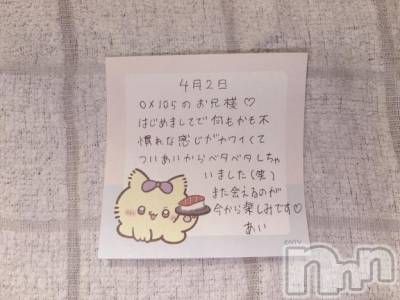 4月2日
OX105のお兄様♡
はじめましてで何もかも不
慣れな感じがカワイくて
ついあいからベタベタしちゃ
いました(笑)
また会えるのが
今から楽しみです♡
あい
nnn